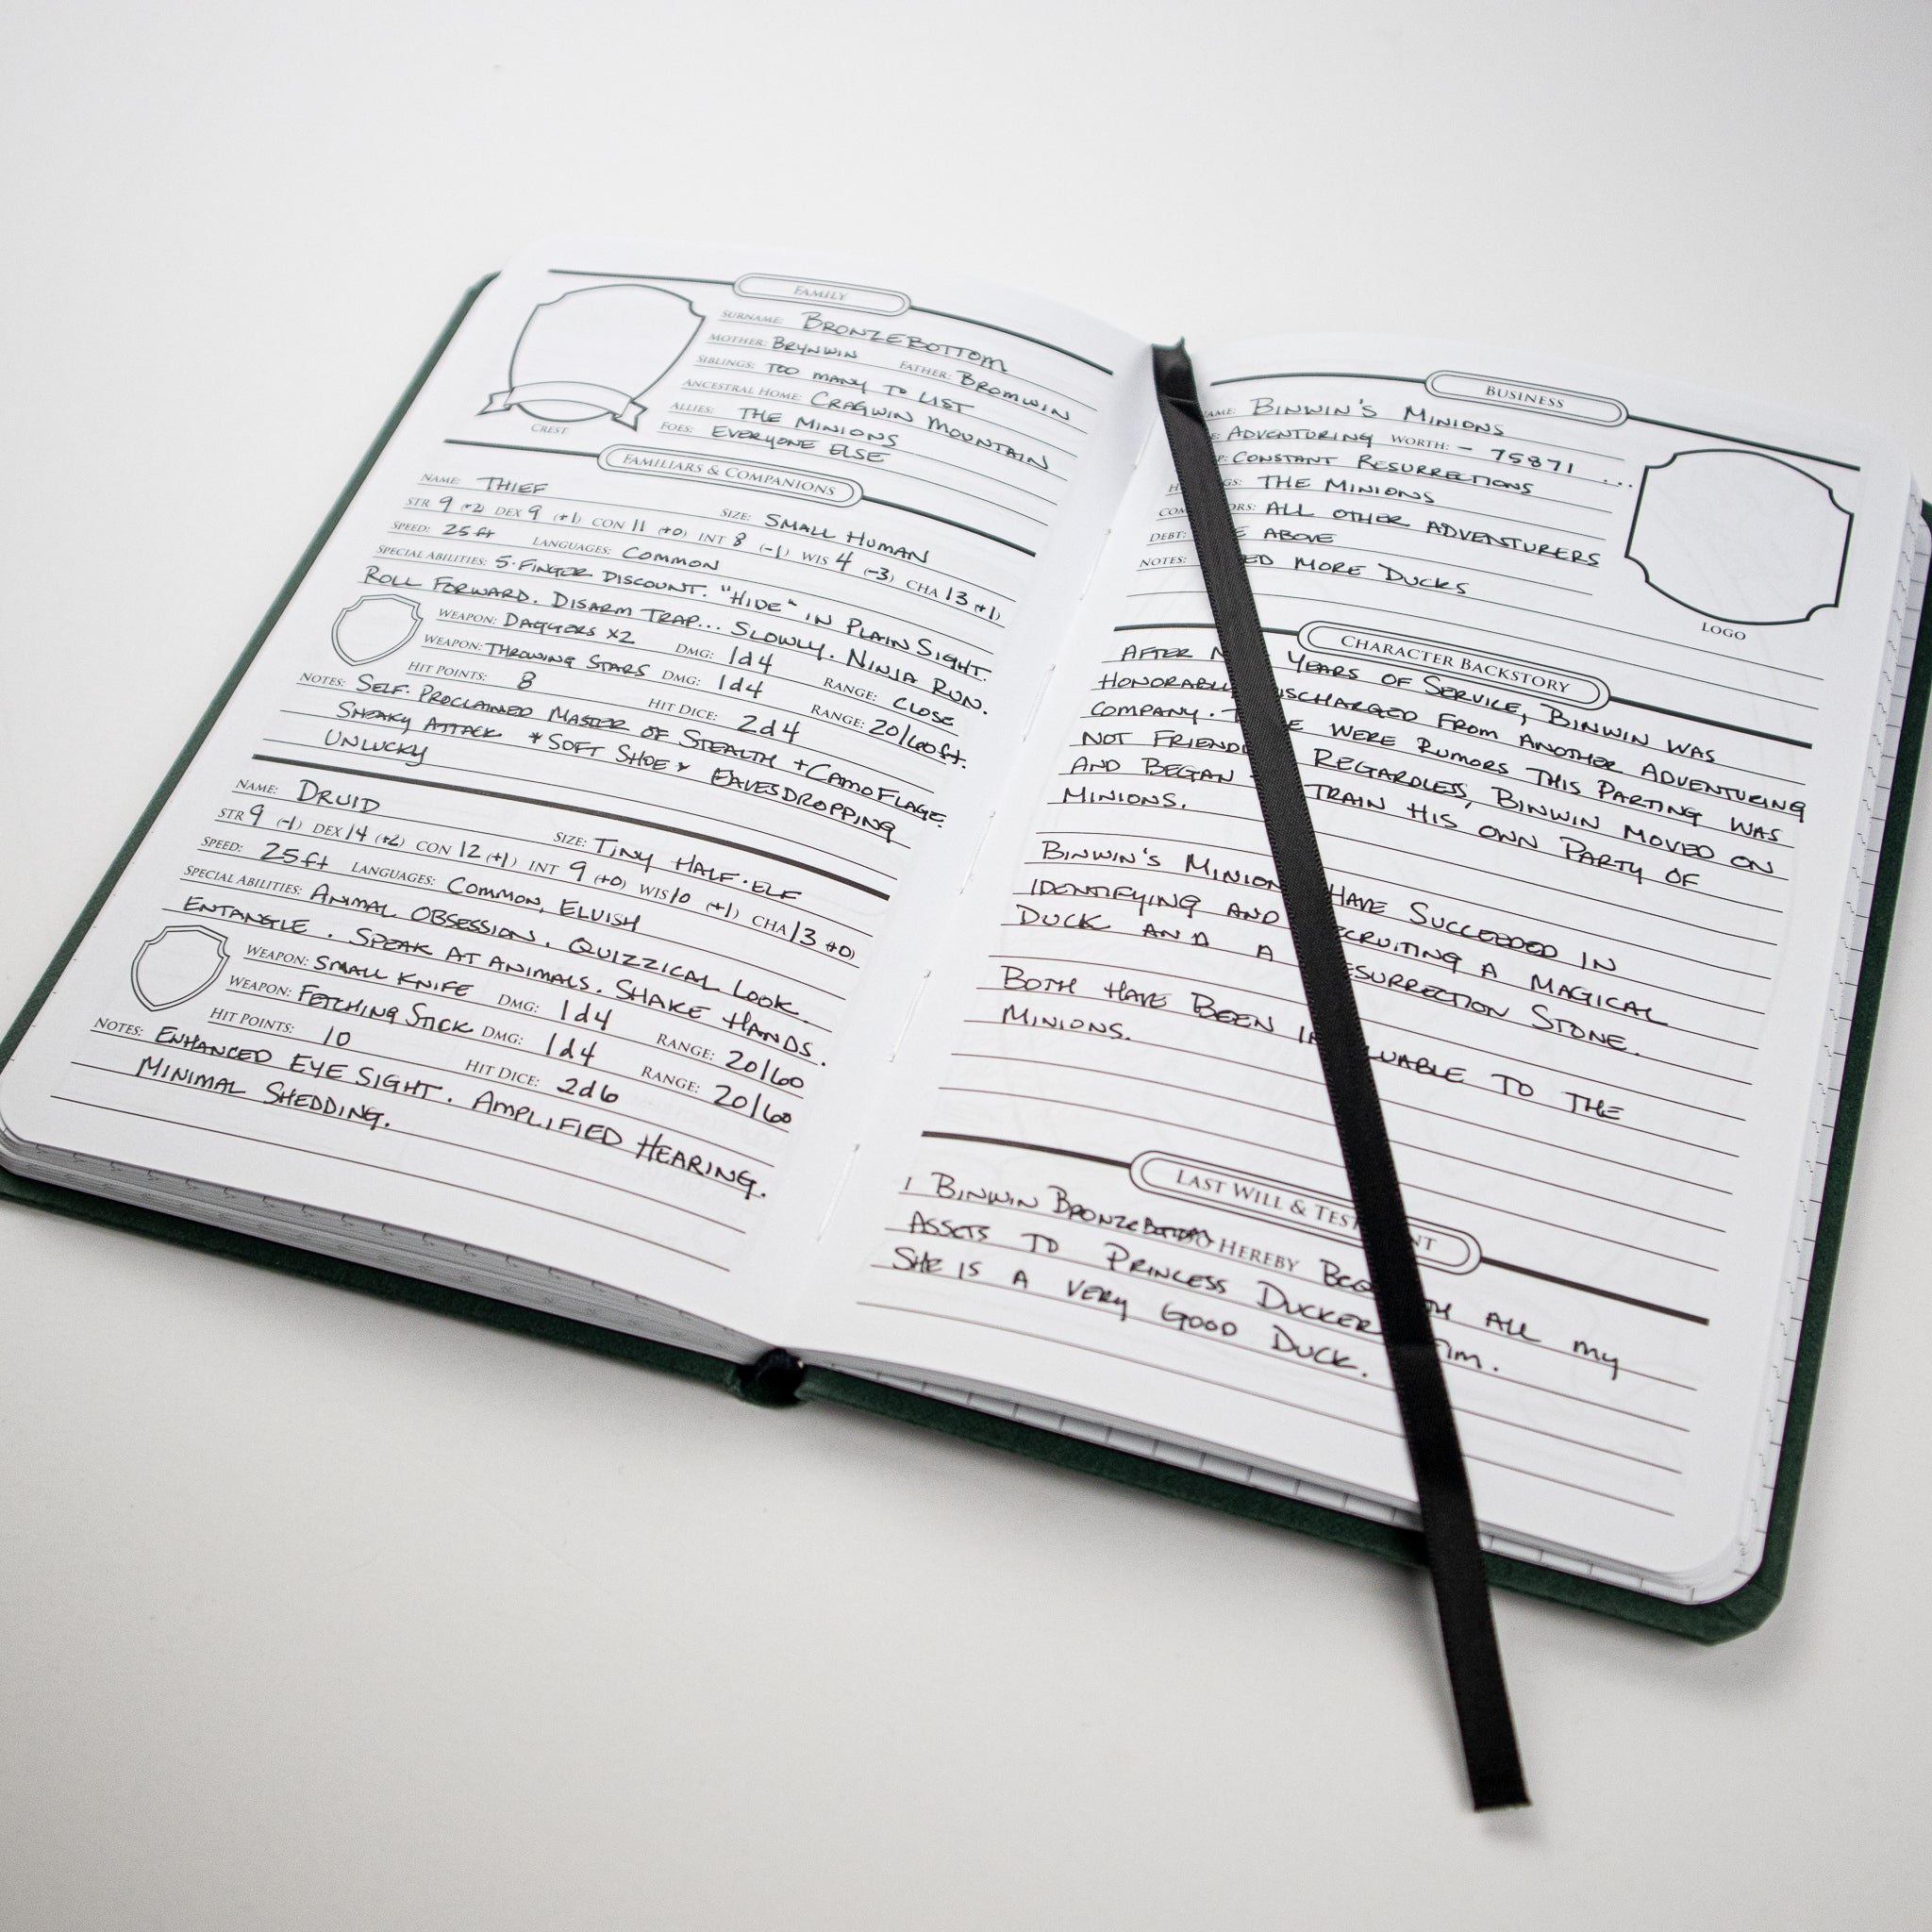 FAMILY
SURNAME: BRONZEBOTTOM
MOTHER: BRYNWIN FATHER: BROMWIN
SIBLINGS: TOO MANY TO LIST
ANCESTRAL HOME: CRAGWIN MOUNTAIN
ALLIES: THE MINIONS
FOES: EVERYONE ELSE
CREST
FAMILIARS & COMPANIONS
NAME: THIEF SIZE: SMALL HUMAN
STR 9 (+2) DEX 9 (+1) CON 11 (+0) INT 8 (-1) WIS 4 (-3) CHA 13 (+1)
SPEED: 25ft LANGUAGES: COMMON
SPECIAL ABILITIES: 5-FINGER DISCOUNT. "HIDE" IN PLAIN SIGHT.
ROLL FORWARD. DISARM TRAP... SLOWLY. NINJA RUN.
WEAPON: DAGGERS X2 DMG: 1d4 RANGE: CLOSE
WEAPON: THROWING STARS DMG: 1d4 RANGE: 20/60ft.
HIT POINTS: 8 HIT DICE: 2d4
NOTES: SELF-PROCLAIMED MASTER OF STEALTH + CAMOFLAGE.
SNEAKY ATTACK * SOFT SHOE * EAVESDROPPING
UNLUCKY
NAME: DRUID SIZE: TINY HALF-ELF
STR 9 (-1) DEX 14 (+2) CON 12 (+1) INT 9 (+0) WIS 10 (+1) CHA 13 (+0)
SPEED: 25ft LANGUAGES: COMMON, ELVISH
SPECIAL ABILITIES: ANIMAL OBSESSION. QUIZZICAL LOOK.
ENTANGLE. SPEAK AT ANIMALS. SHAKE HANDS.
WEAPON: SMALL KNIFE DMG: 1d4 RANGE: 20/60
WEAPON: FETCHING STICK DMG: 1d4 RANGE: 20/60
HIT POINTS: 10 HIT DICE: 2d6
NOTES: ENHANCED EYE SIGHT. AMPLIFIED HEARING.
MINIMAL SHEDDING.
BUSINESS
BINWIN'S MINIONS
ADVENTURING WORTH: - 75871 ...
CONSTANT RESURRECTIONS
THE MINIONS
ALL OTHER ADVENTURERS
DEBT: ABOVE
NOTES: MORE DUCKS
LOGO
CHARACTER BACKSTORY
AFTER YEARS OF SERVICE, BINWIN WAS
HONORABLY DISCHARGED FROM ANOTHER ADVENTURING
COMPANY. WERE RUMORS THIS PARTING WAS
NOT REGARDLESS, BINWIN MOVED ON
AND BEGAN TRAIN HIS OWN PARTY OF
MINIONS.
BINWIN'S MINIONS HAVE SUCCEEDED IN
IDENTIFYING AND RECRUITING A MAGICAL
DUCK AND A RESURRECTION STONE.
BOTH HAVE BEEN INVALUABLE TO THE
MINIONS.
LAST WILL & TESTAMENT
I BINWIN BRONZEBOTTOM HEREBY BEQUEATH ALL MY
ASSETS TO PRINCESS
SHE IS A VERY GOOD DUCK.